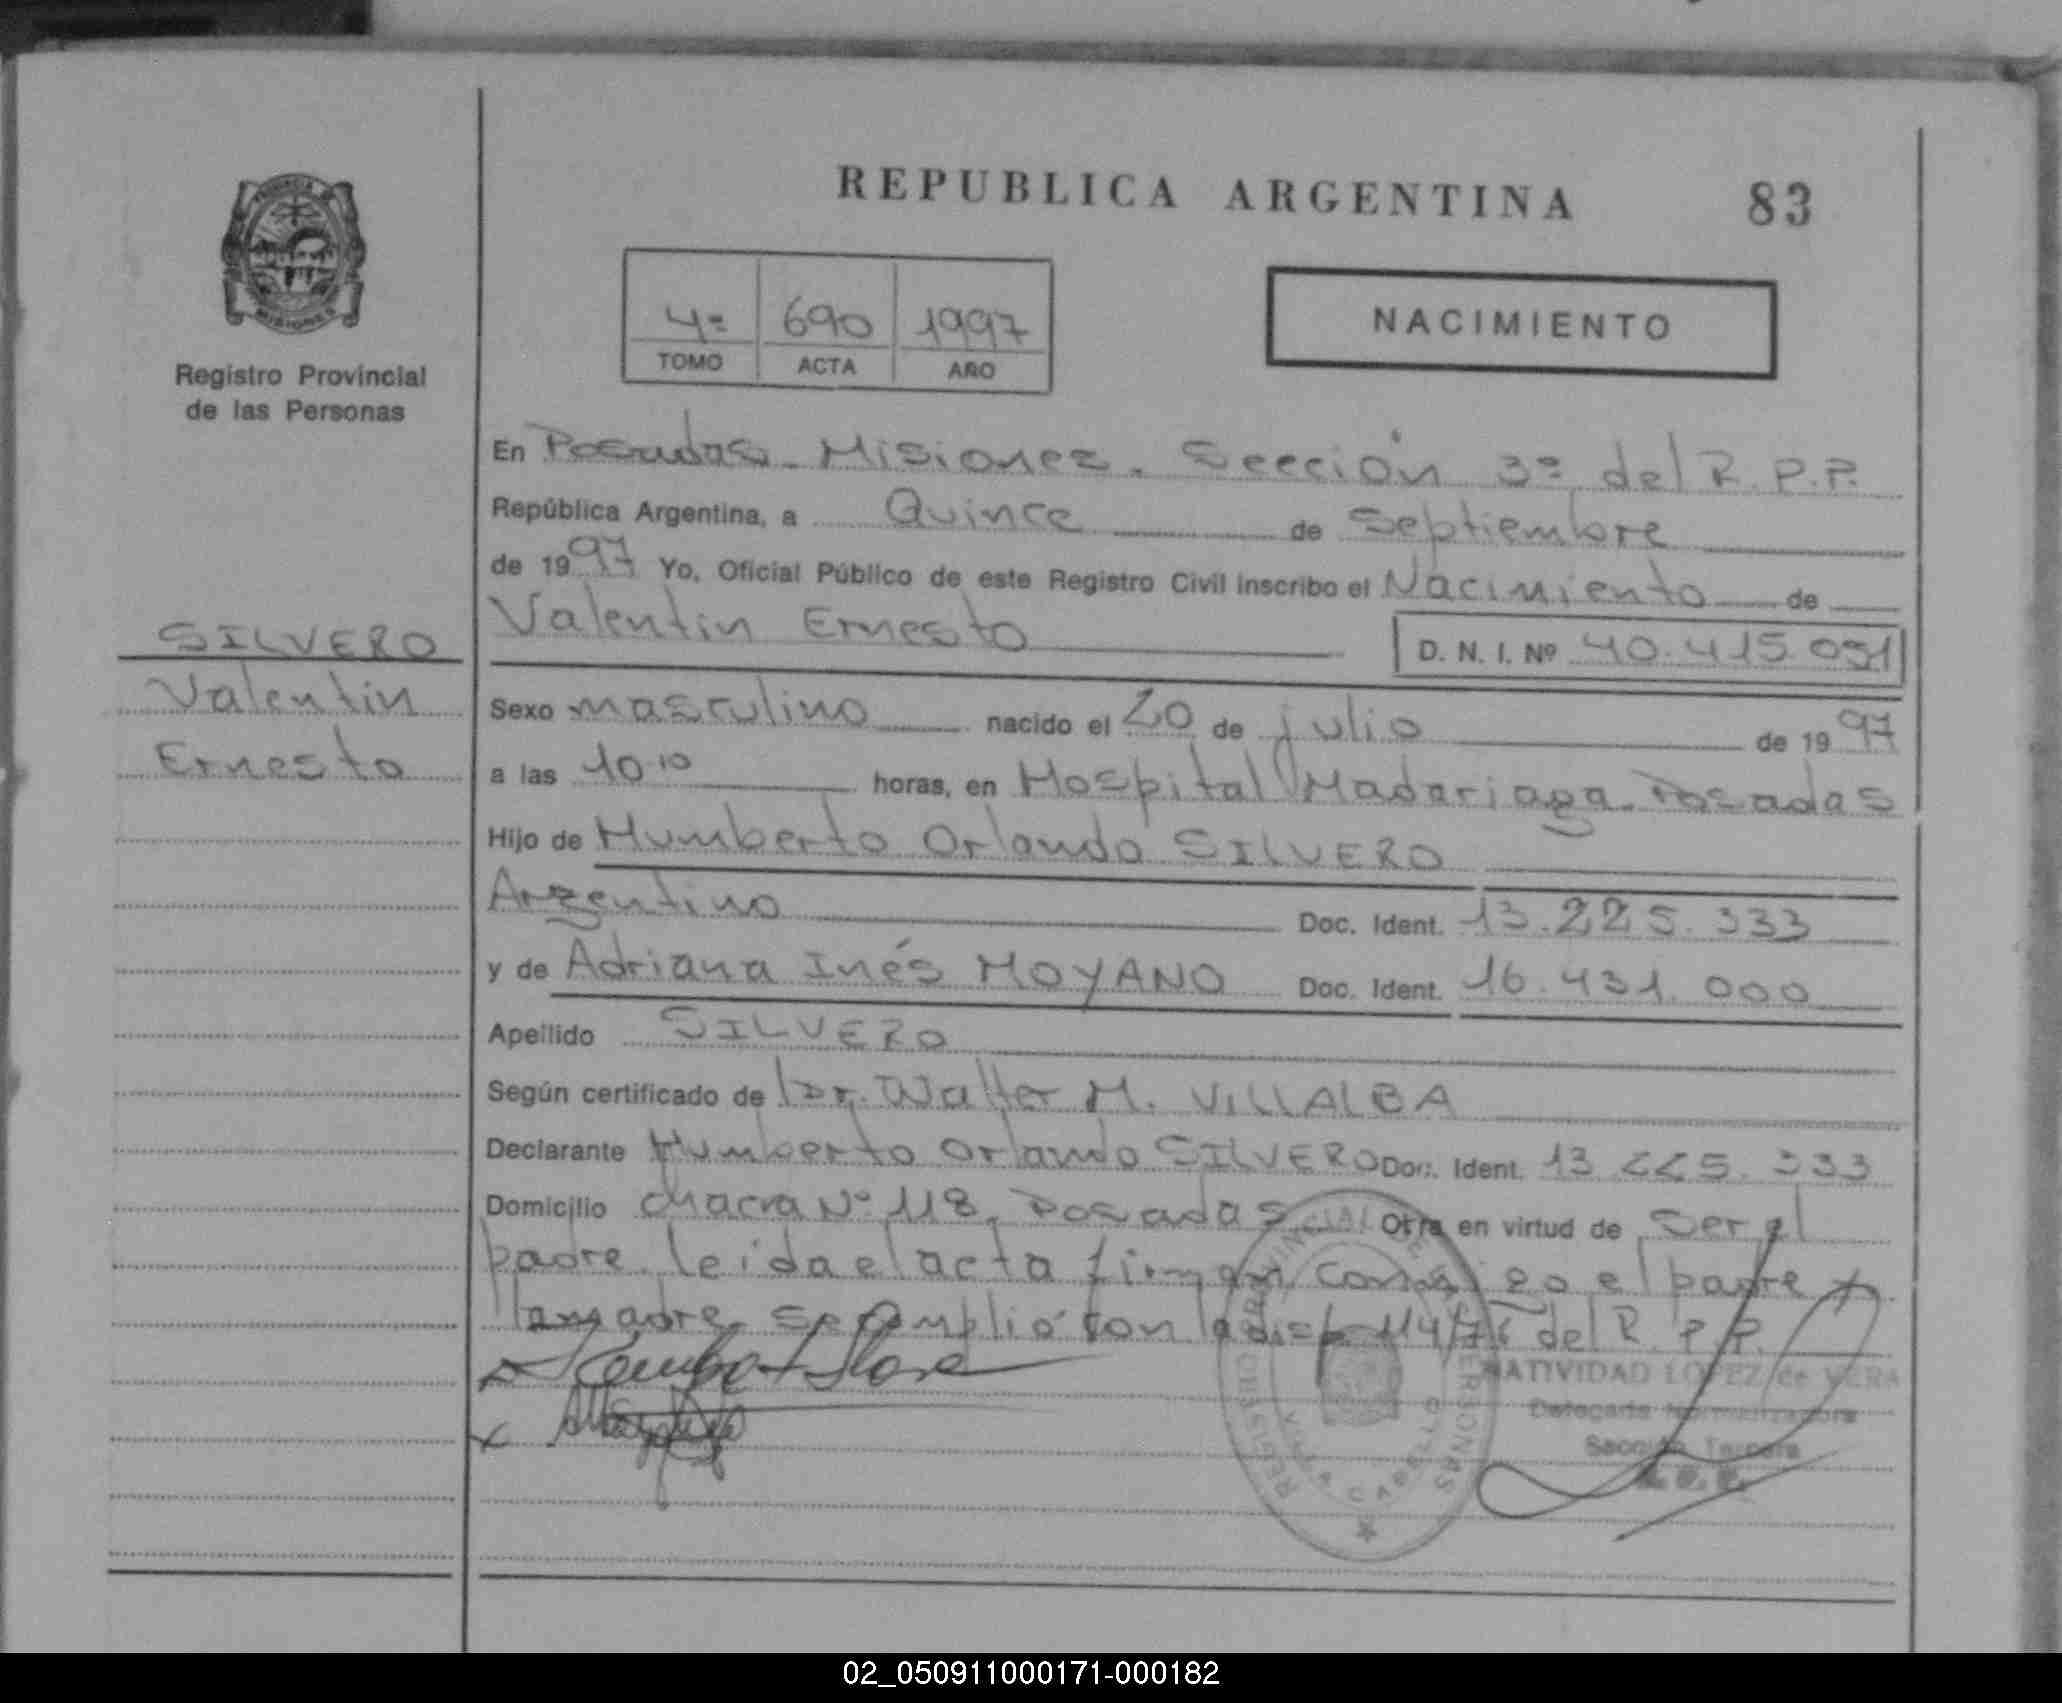 REPUBLICA ARGENTINA 83
PROVINCIA
MISIONES
Registro Provincial
de las Personas
4º 690 1997
TOMO ACTA AÑO
NACIMIENTO
En Posadas. Misiones. Sección 3º del R.P.P.
República Argentina, a Quince de Septiembre
de 1997 Yo, Oficial Público de este Registro Civil inscribo el Nacimiento de
SILVERO
Valentin
Ernesto
Valentin Ernesto D. N. I. Nº 40.415.051
Sexo masculino nacido el 20 de julio de 1997
a las 10 10 horas, en Hospital Madariaga. Posadas
Hijo de Humberto Orlando SILVERO
Argentino Doc. Ident. 13.225.333
y de Adriana Inés MOYANO Doc. Ident. 16.431.000
Apellido SILVERO
Según certificado de Dr. Walter M. VILLALBA
Declarante Humberto Orlando SILVERO Doc. Ident. 13.225.333
Domicilio Chacra Nº 118, Posadas Otra en virtud de Ser el
padre. leida el acta firman conmigo el padre y
la madre. se cumplió con la disp. 114/76 del R.P.P.
NATIVIDAD LOPEZ de VERA
Delegada Normalizadora
Sección Tercera
REGISTRO PROVINCIAL DE PERSONAS
VILLA CABELLO
02_050911000171-000182